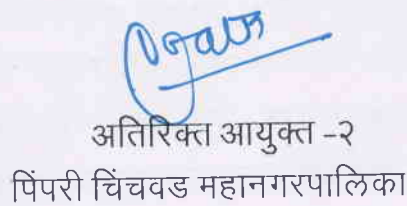 अतिरिक्त आयुक्त -२
पिंपरी चिंचवड महानगरपालिका